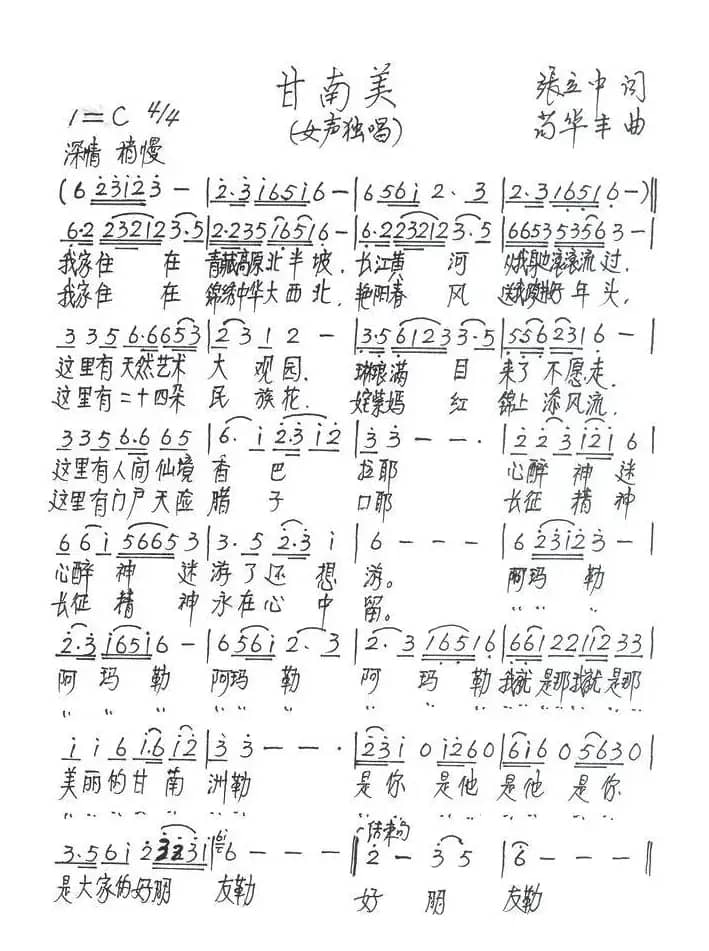 甘南美
(女声独唱)
张立中 词
苟华丰 曲
1=C 4/4
深情 稍慢
(6 2312 3 - | 2.3 1651 6 - | 6 561 2. 3 | 2.3 1651 6 -)‖
6.2 2321 2 3.5 | 2.235 1651 6 - | 6.2 2321 2 3.5 | 6653 5356 3 - |
我家住 在 青藏高原北半坡, 长江黄 河 滚滚流过,
我家住 在 锦绣中华大西北, 艳阳春 风 年头,
3 35 6.665 3 | 2 3 1 2 - | 3.561 23 3.5 | 556 231 6 - |
这里有天然艺术 大 观园, 琳琅满 目 来了不愿走,
这里有二十四朵 民 族花, 姹紫嫣 红 锦上添风流,
335 6.6 65 | 6. 1 2.3 12 | 3 3 - - - | 2 2 3 121 6 |
这里有人间仙境 香 巴 拉耶 心醉 神 迷
这里有门户天险 腊 子 口耶 长征 精 神
6 6 1 5665 3 | 3. 5 2.3 1 | 6 - - - | 6 2312 3 - |
心醉 神 迷 游了还想 游。 阿玛 勒
长征 精 神 永在心中 留。 〃 〃 〃
2.3 1651 6 - | 6 561 2. 3 | 2. 3 1651 6 | 661 22 112 33 |
阿 玛 勒 阿玛 勒 阿 玛 勒 我就是那我就是那
1 1 6 1.6 12 | 3 3 - - · | 231 0 126 0 | 616 0 563 0 |
美丽的甘 南 洲勒 是你 是他 是他 是你
结束句
3.561 2 3231 | 6 - - - ‖ 2 - 3 5 | 6 - - - ‖
是大家的好朋 友勒 好 朋 友勒